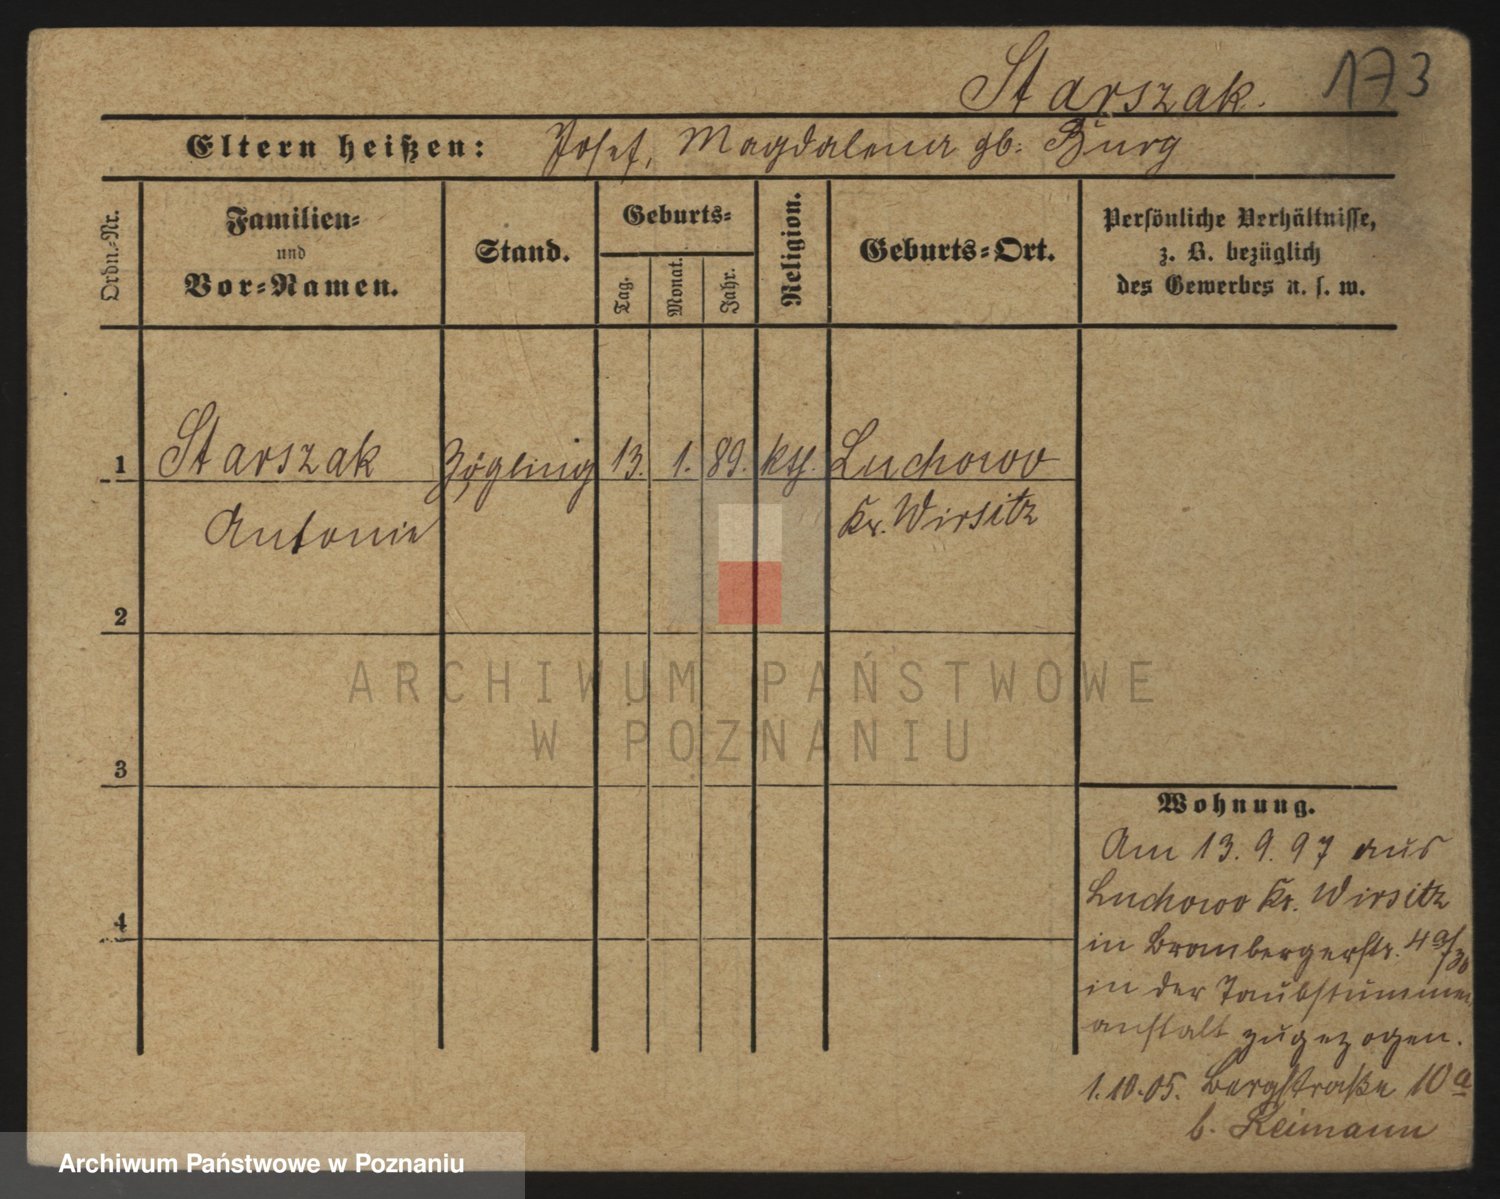 Starszak.
173
Eltern heißen: Josef, Magdalena gb. Burg
Ordn.-Nr.
Familien-
und
Vor-Namen.
Stand.
Geburts-
Tag.
Monat.
Jahr.
Religion.
Geburts-Ort.
Persönliche Verhältnisse,
z. B. bezüglich
des Gewerbes u. s. w.
1 Starszak Zögling 13. 1. 89. kth. Luchowo
Antonie Kr. Wirsitz
2
3
4
Wohnung.
Am 13. 9. 97 aus
Luchowo Kr. Wirsitz
in Brombergerstr. 4a/3b
in der Taubstummen
anstalt zugezogen.
1.10.05. Bergstraße 10a
b. Reimann
ARCHIWUM PAŃSTWOWE
W POZNANIU
Archiwum Państwowe w Poznaniu